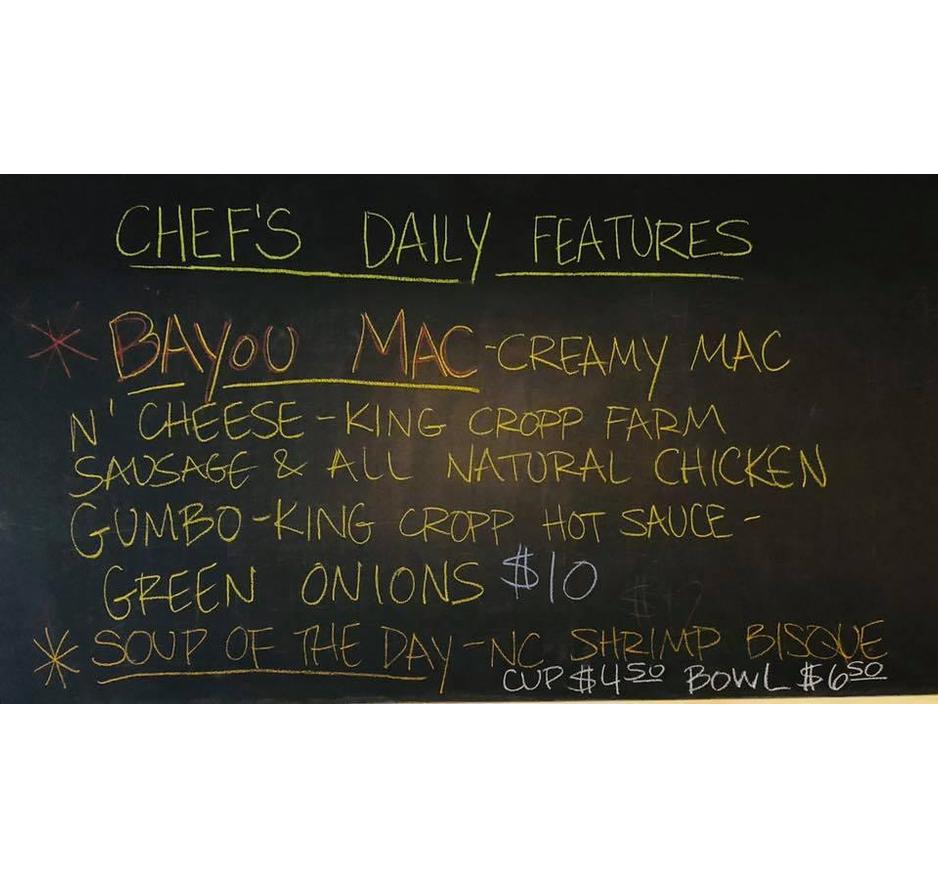 CHEF'S DAILY FEATURES
* BAYOU MAC -CREAMY MAC
N' CHEESE - KING CROPP FARM
SAUSAGE & ALL NATURAL CHICKEN
GUMBO - KING CROPP HOT SAUCE -
GREEN ONIONS $10
* SOUP OF THE DAY - NC SHRIMP BISQUE
CUP $4.50 BOWL $6.50